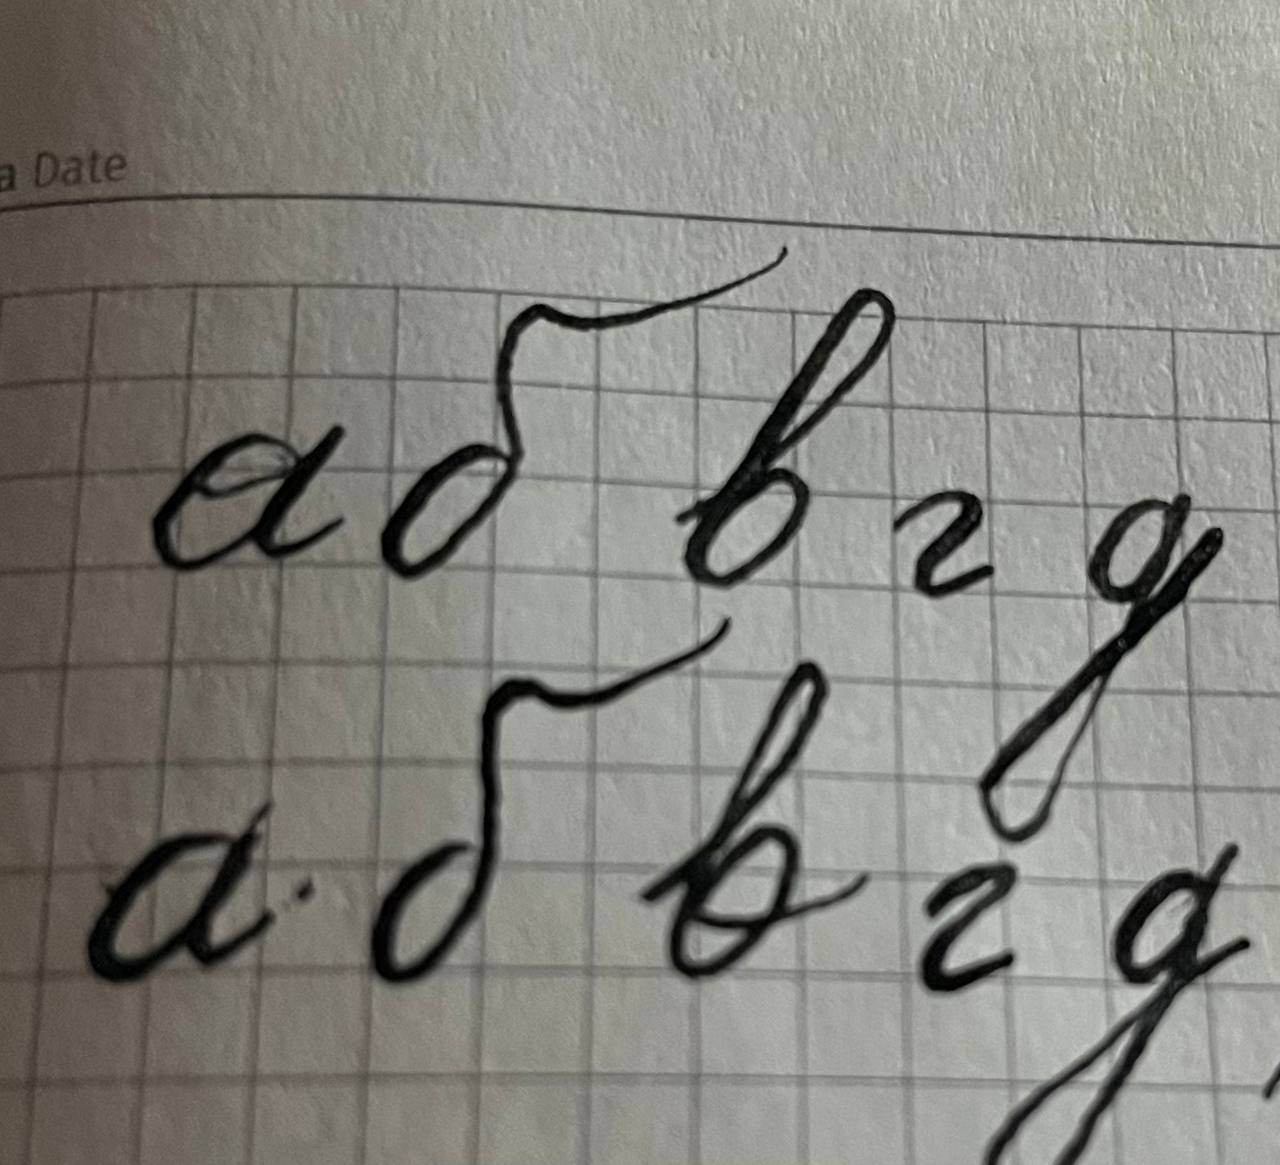 a Date
а б в г д
а б в г д